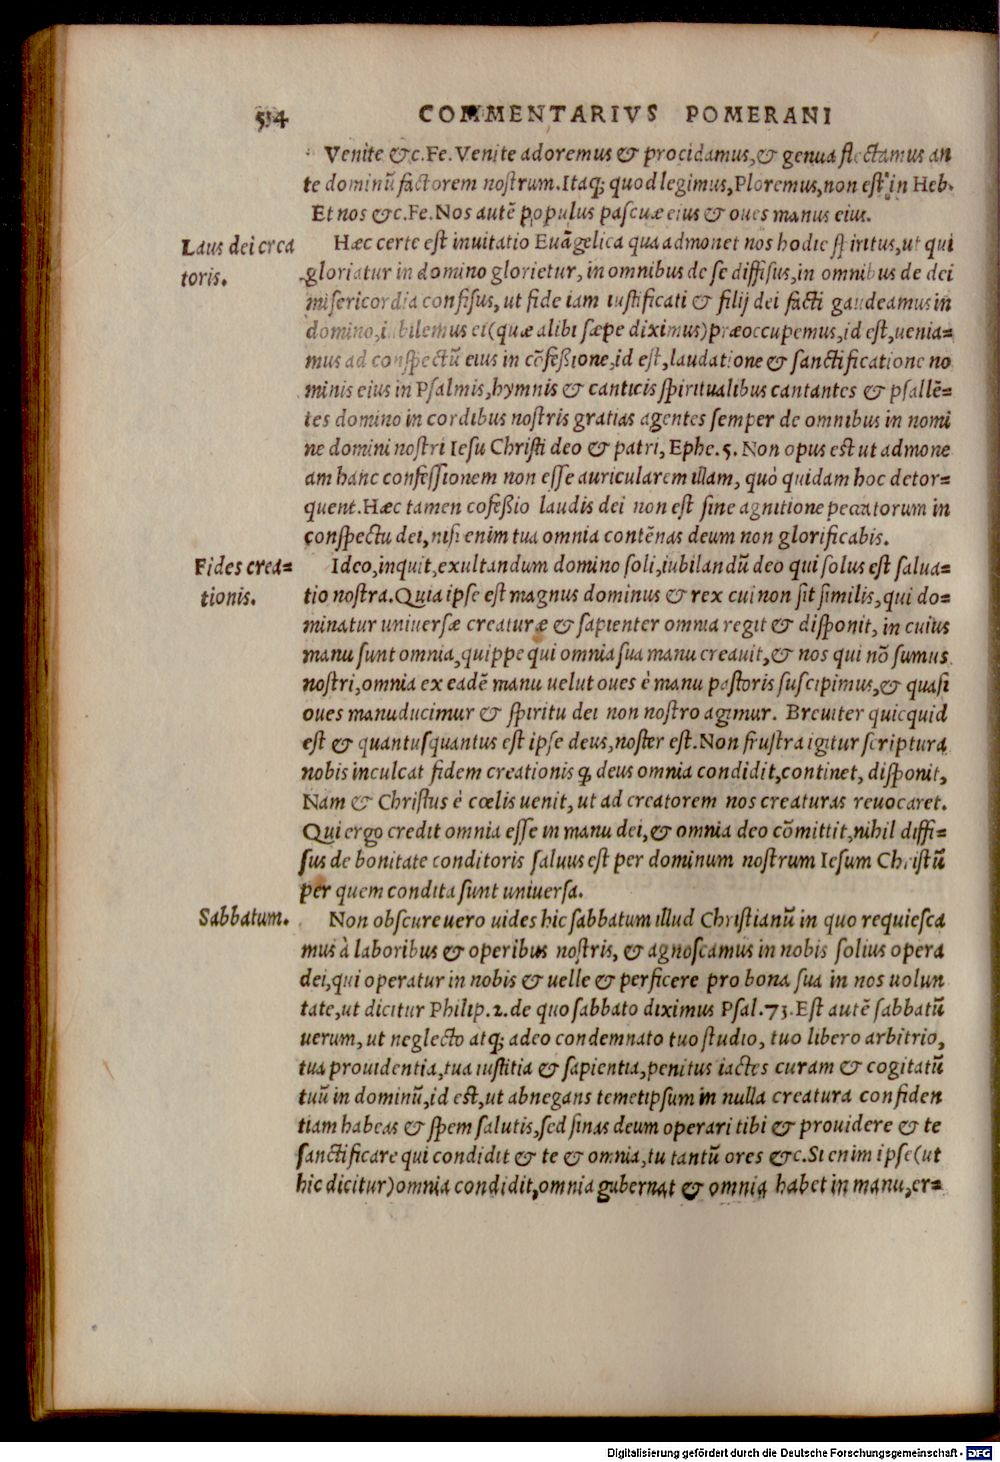 514 COMMENTARIVS POMERANI
Venite &c. Fe. Venite adoremus & procidamus, & genua flectamus an
te dominũ factorem nostrum. Itaq; quod legimus, Ploremus, non est in Heb.
Et nos &c. Fe. Nos autẽ populus pascuæ eius & oues manus eius.
Laus dei crea
toris.
Hæc certe est inuitatio Euãgelica qua admonet nos hodie spiritus, ut qui
gloriatur in domino glorietur, in omnibus de se diffisus, in omnibus de dei
misericordia confisus, ut fide iam iustificati & filij dei facti gaudeamus in
domino, iubilemus ei (quæ alibi sæpe diximus) præoccupemus, id est, uenia=
mus ad conspectũ eius in cõfeßione, id est, laudatione & sanctificatione no
minis eius in Psalmis, hymnis & canticis spiritualibus cantantes & psallẽ=
tes domino in cordibus nostris gratias agentes semper de omnibus in nomi
ne domini nostri Iesu Christi deo & patri, Ephe. 5. Non opus est ut admone
am hanc confessionem non esse auricularem illam, quò quidam hoc detor=
quent. Hæc tamen cofeßio laudis dei non est sine agnitione peccatorum in
conspectu dei, nisi enim tua omnia contẽnas deum non glorificabis.
Fides crea=
tionis.
Ideo, inquit, exultandum domino soli, iubilandũ deo qui solus est salua=
tio nostra. Quia ipse est magnus dominus & rex cui non sit similis, qui do=
minatur uniuersæ creaturæ & sapienter omnia regit & disponit, in cuius
manu sunt omnia, quippe qui omnia sua manu creauit, & nos qui nõ sumus
nostri, omnia ex eadẽ manu uelut oues è manu pastoris suscipimus, & quasi
oues manuducimur & spiritu dei non nostro agimur. Breuiter quicquid
est & quantusquantus est ipse deus, noster est. Non frustra igitur scriptura
nobis inculcat fidem creationis q, deus omnia condidit, continet, disponit,
Nam & Christus è cœlis uenit, ut ad creatorem nos creaturas reuocaret.
Qui ergo credit omnia esse in manu dei, & omnia deo cõmittit, nihil diffi=
sus de bonitate conditoris saluus est per dominum nostrum Iesum Christũ
per quem condita sunt uniuersa.
Sabbatum.
Non obscure uero uides hic sabbatum illud Christianũ in quo requiesca
mus à laboribus & operibus nostris, & agnoscamus in nobis solius opera
dei, qui operatur in nobis & uelle & perficere pro bona sua in nos uolun
tate, ut dicitur Philip. 2. de quo sabbato diximus Psal. 73. Est autẽ sabbatũ
uerum, ut neglecto atq; adeo condemnato tuo studio, tuo libero arbitrio,
tua prouidentia, tua iustitia & sapientia, penitus iactes curam & cogitatũ
tuũ in dominũ, id est, ut abnegans temetipsum in nulla creatura confiden
tiam habeas & spem salutis, sed sinas deum operari tibi & prouidere & te
sanctificare qui condidit & te & omnia, tu tantũ ores &c. Si enim ipse (ut
hic dicitur) omnia condidit, omnia gubernat & omnia habet in manu, er=
Digitalisierung gefördert durch die Deutsche Forschungsgemeinschaft - DFG